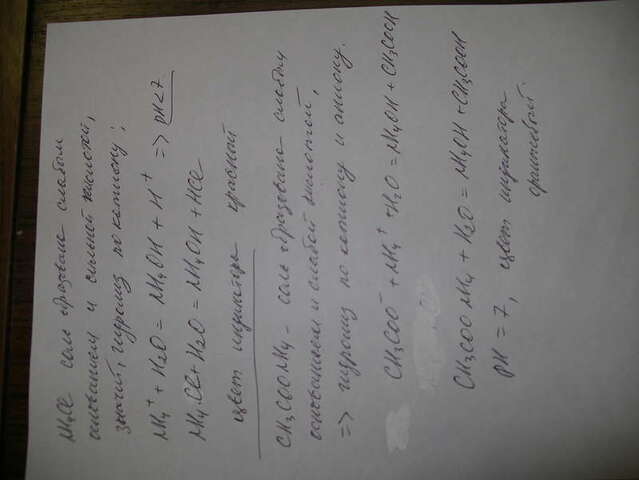 NH4Cl соль образована слабым
основанием и сильной кислотой,
значит, гидролиз по катиону;
NH4⁺ + H2O = NH4OH + H⁺ => pH<7
NH4Cl + H2O = NH4OH + HCl
цвет индикатора красный
CH3COONH4 - соль образована слабым
основанием и слабой кислотой,
=> гидролиз по катиону и аниону.
CH3COO⁻ + NH4⁺ + H2O = NH4OH + CH3COOH
CH3COONH4 + H2O = NH4OH + CH3COOH
pH = 7, цвет индикатора
оранжевый.